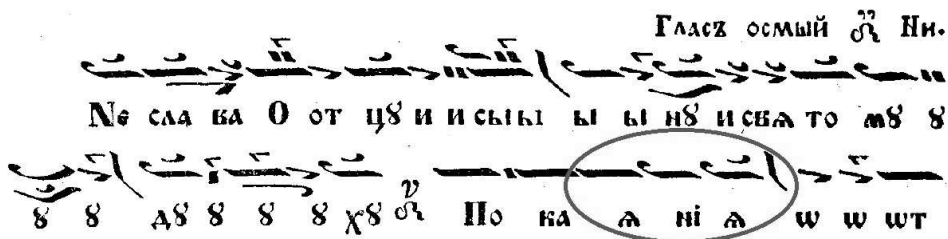 Гласъ осмый Ни.
Ne сла ва О от цꙋ и и сы ы ы ы нꙋ и свѧ то мꙋ ꙋ
ꙋ ꙋ дꙋ ꙋ ꙋ ꙋ хꙋ По ка ѧ нї ѧ ѡ ѡ ѡт